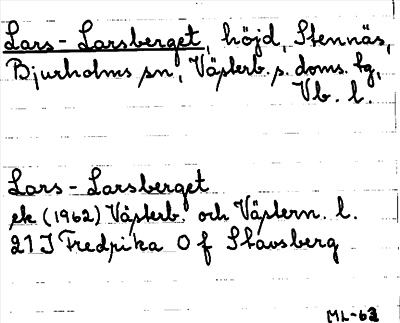 Lars-Larsberget, höjd, Stennäs,
Bjurholms sn, Västerb. s. doms. tg,
Vb. l.
Lars-Larsberget
ek (1962) Västerb. och Västern. l.
21 J Fredrika O f Stavsberg
ML-63